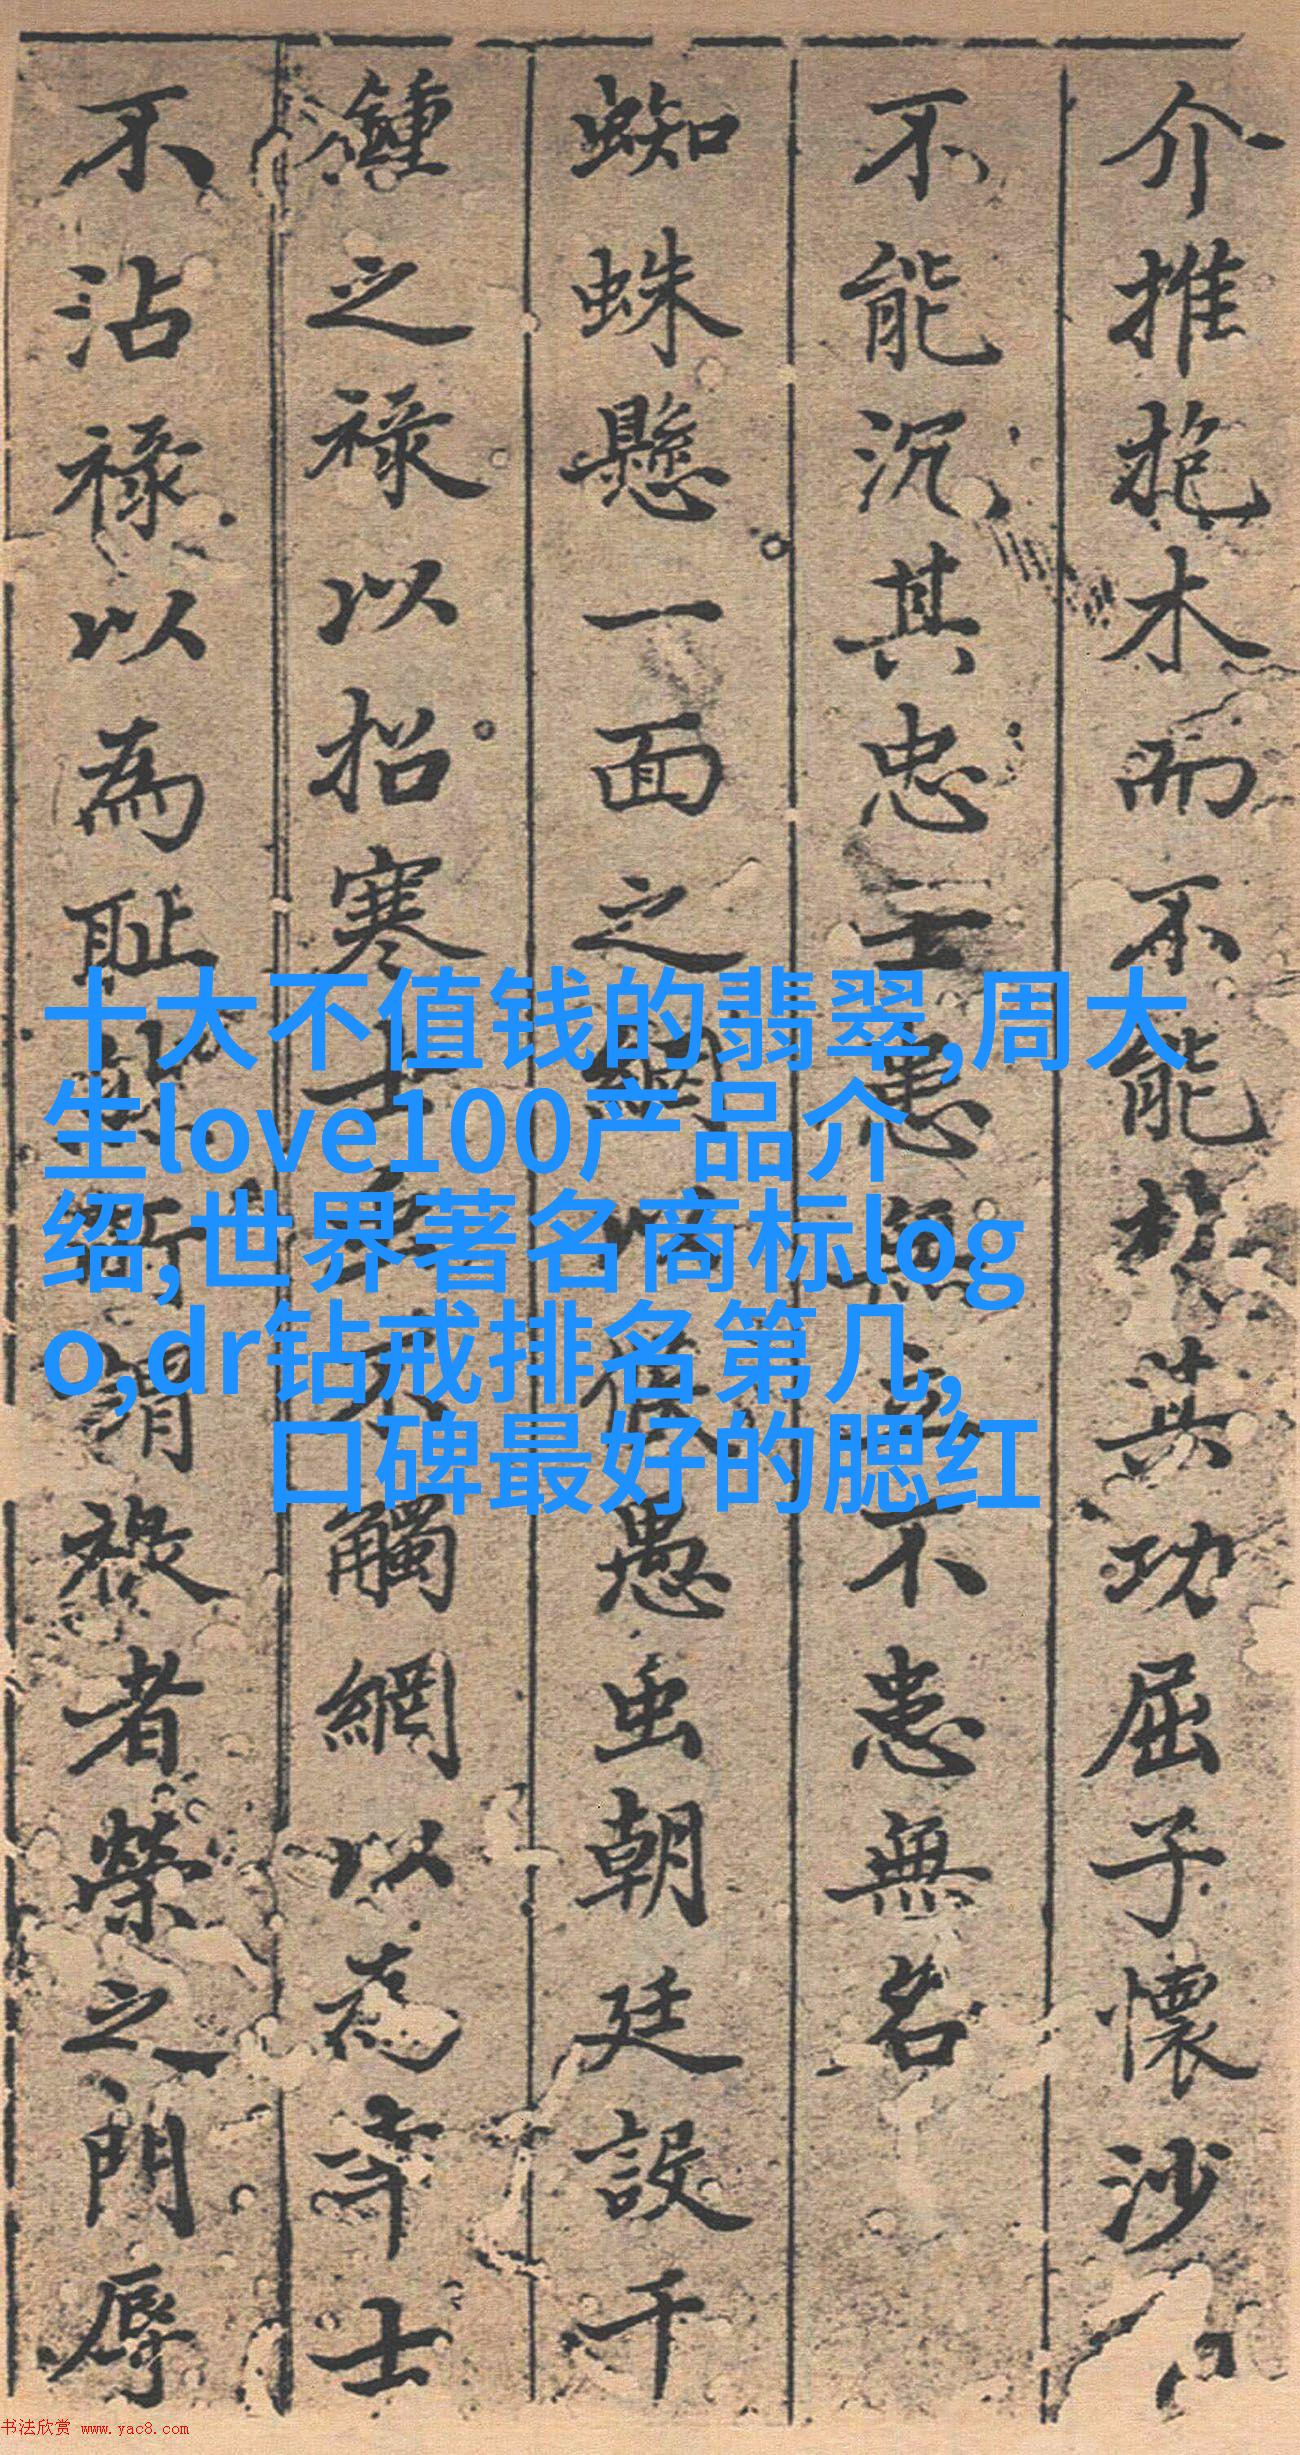 介推抱木而不能杖其功屈子懷沙
不能沉其忠士患無立不患無名
蜘蛛懸一面之網以役愚虫朝廷設千
鍾之祿以招寒士士不觸網以為幸士
不沾祿以為耻所謂祿者榮之門辱
十大不值钱的翡翠,周大
生love100产品介
绍,世界著名商标log
o,dr钻戒排名第几,
口碑最好的腮红
书法欣赏 www.yac8.com